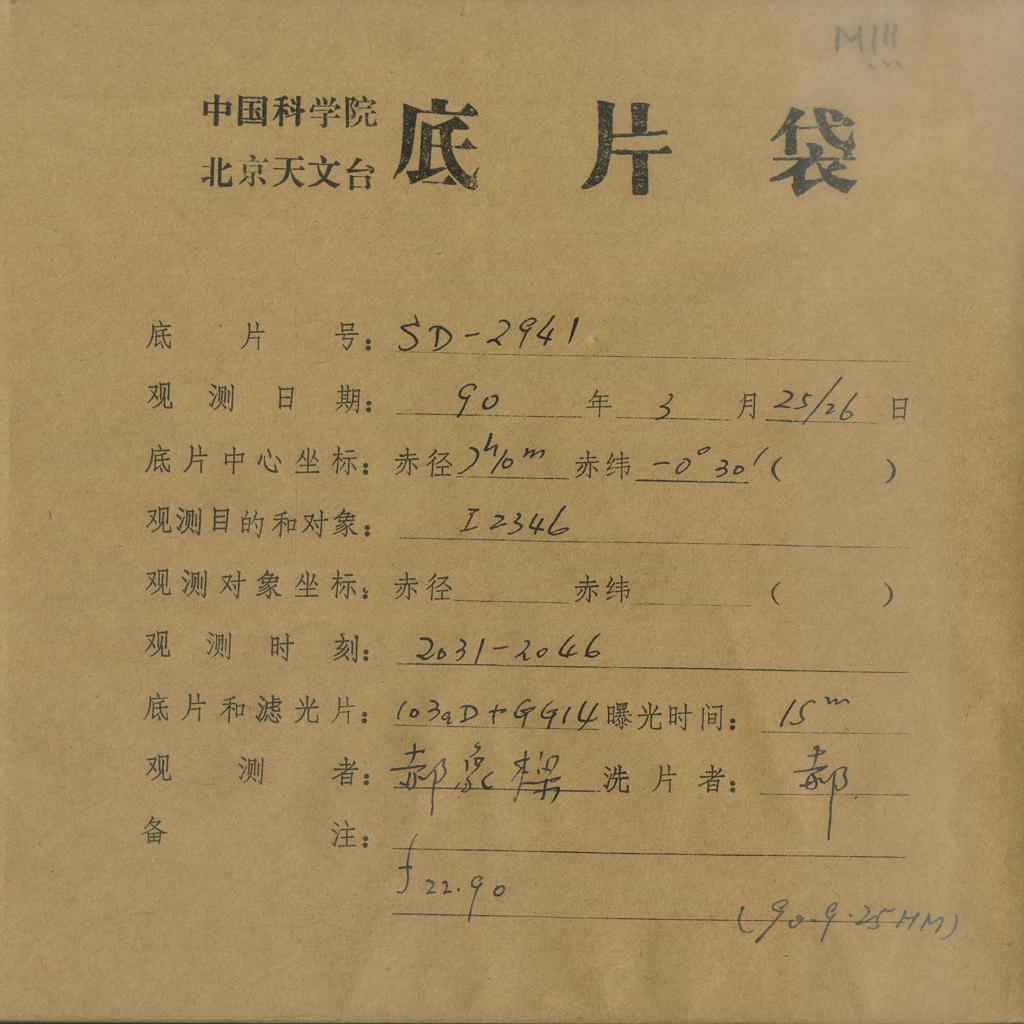 M111
中国科学院
北京天文台 底片袋
底片号: SD-2941
观测日期: 90年3月25/26日
底片中心坐标: 赤径 7h10m 赤纬 -0°30′( )
观测目的和对象: I2346
观测对象坐标: 赤径 赤纬 ( )
观测时刻: 2031-2046
底片和滤光片: 103aD+GG14 曝光时间: 15m
观测者: 郝象樑 洗片者: 郝
备注:
f22.90
(90.9.25HM)